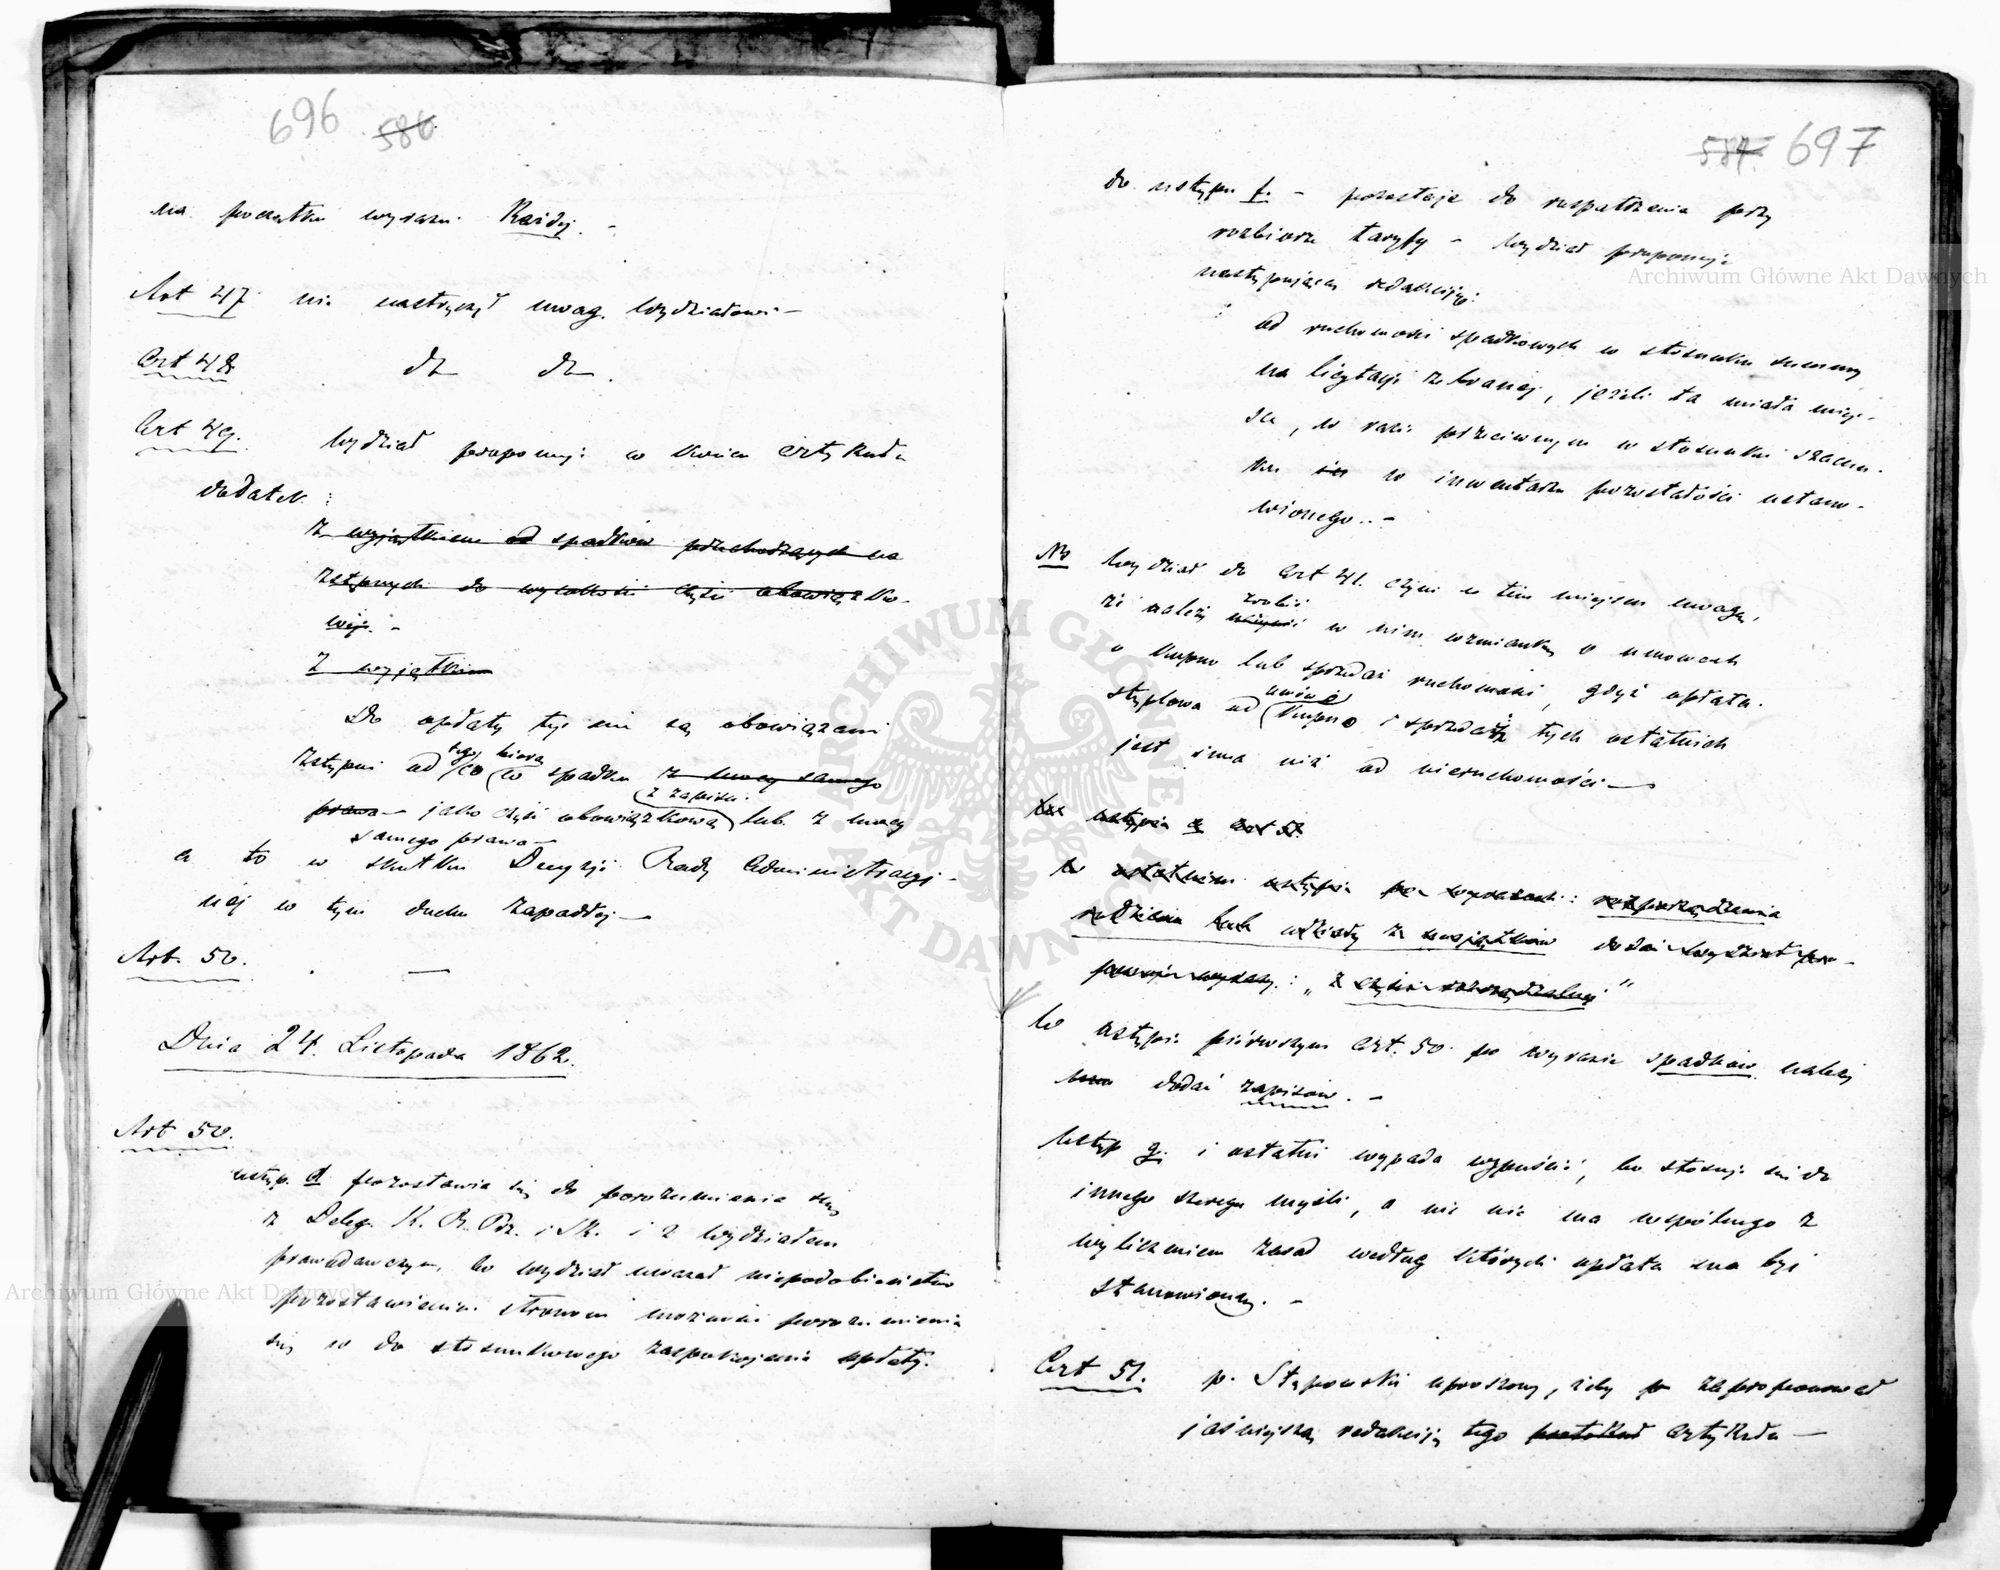 696 586
na początku wyrazu Każdej. –
Art 47. nie nastręczył uwag Wydziałowi –
Art 48. dto dto.
Art 49. Wydział proponuje w końcu Artykułu
dodatek:
z wyjątkiem od spadków przechodzących na
zstępnych do wysokości części obowiązko-
wéj. –
z wyjątkiem
Do opłaty téj nie są obowiązani
tego biorą
zstępni od co w spadku z mocy samego
z zapisu
prawa – jako część obowiązkową lub z mocy
samego prawa –
a to w skutku Decyzji Rady Administracyj-
néj w tym duchu zapadłéj –
Art. 50. –
Dnia 24. Listopada 1862.
Art 50.
ustęp. d. pozostawia się do porozumienia się
z Deleg. K. R. Prz. i Sk. i z Wydziałem
prawodawczym, bo wydział uważał niepodobieństwo
pozostawienia stronom możności porozumienia
się co do stosunkowego zaspokojenia opłaty.
587. 697
do ustępu f. – pozostaje do rozpatrzenia przy
rozbiorze taryfy – Wydział proponuje
następującą redakcyję:
od ruchomości spadkowych w stosunku summy
na licytacji zebranéj, jeżeli ta miała miej-
sce, w razie przeciwnym w stosunku szacun-
ku w inwentarzu pozostałości ustano-
wionego. –
NB Wydział do Art 41. czyni w tém miejscu uwagę,
zrobić
że należy uczynić w nim wzmiankę o umowach
o kupno lub sprzedaż ruchomości, gdyż opłata
umów o
stęplowa od kupno i sprzedaż tych ostatnich
jest inna niż od nieruchomości –
ustępie Art 50.
w ostatnim ustępie po wyrazach: rozporządzenia
rodziców lub udziały z majątków dodać wydział pro-
ponuje wyrazy: „z części rozrządzalnéj”
W ustępie piérwszym Art. 50 po wyrazie spadków należy
dodać zapisów. –
Ustęp g. i ostatni wypada wypuścić, bo stosuje się do
innego szeregu myśli, a nic nie ma wspólnego z
wyliczeniem zasad według których opłata ma być
stanowioną. –
Art 51. p. Stępowski uproszony, żeby p zaproponował
jaśniejszą redakcyją tego Artykułu –
Archiwum Główne Akt Dawnych
Archiwum Główne Akt Dawnych
ARCHIWUM GŁÓWNE AKT DAWNYCH